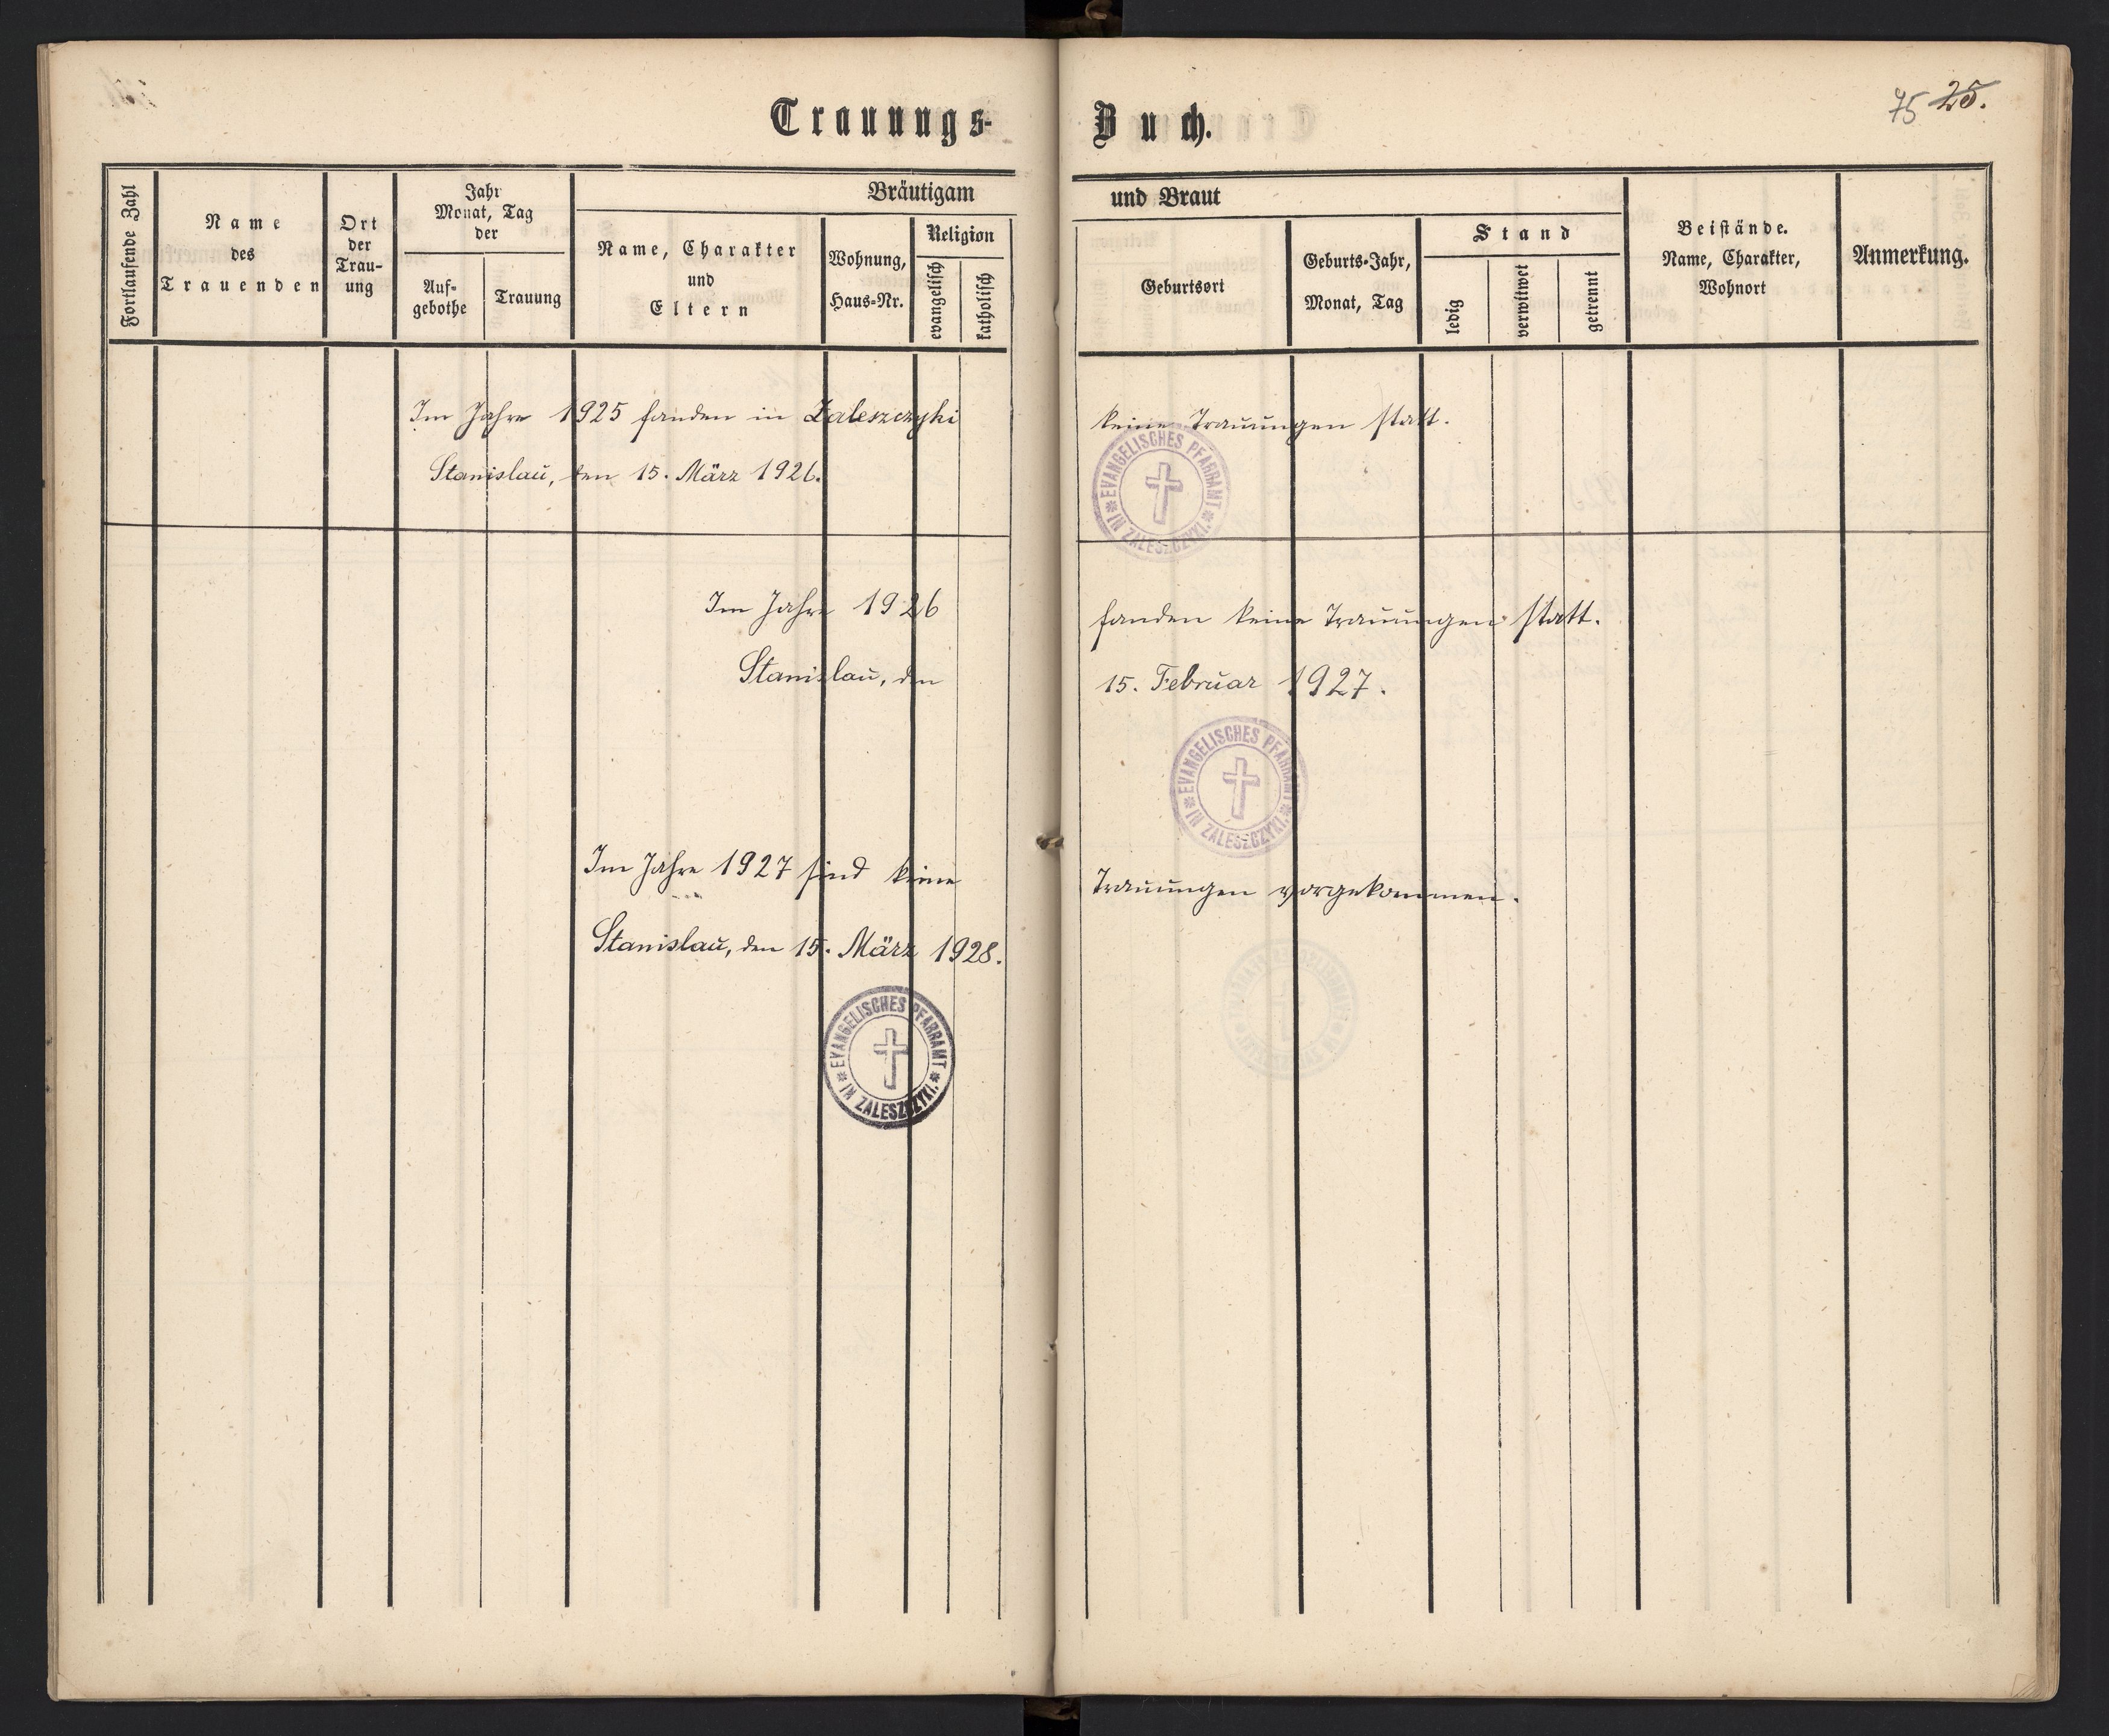 Trauungs-Buch.
75 25.
Fortlaufende Zahl
Name
des
Trauenden
Ort
der
Trau-
ung
Jahr
Monat, Tag
der
Auf-
gebothe
Trauung
Bräutigam und Braut
Name, Charakter
und
Eltern
Wohnung,
Haus-Nr.
Religion
evangelisch
katholisch
Geburtsort
Geburts-Jahr,
Monat, Tag
Stand
ledig
verwitwet
getrennt
Beistände.
Name, Charakter,
Wohnort
Anmerkung.
Im Jahre 1925 fanden in Zaleszczyki keine Trauungen statt.
Stanislau, den 15. März 1926.
EVANGELISCHES PFARRAMT
IN ZALESZCZYKI.
Im Jahre 1926 fanden keine Trauungen statt.
Stanislau, den 15. Februar 1927.
EVANGELISCHES PFARRAMT
IN ZALESZCZYKI.
Im Jahre 1927 sind keine Trauungen vorgekommen.
Stanislau, den 15. März 1928.
EVANGELISCHES PFARRAMT
IN ZALESZCZYKI.